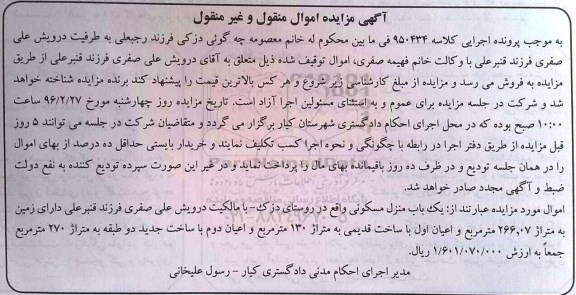 آگهی مزایده اموال منقول و غیر منقول
به موجب پرونده اجرایی کلاسه ۹۵۰۴۳۴ فی ما بین محکوم له خانم معصومه چه گونی دزکی فرزند رجبعلی به طرفیت درویش علی
صفری فرزند قنبرعلی با وکالت خانم فهیمه صفری، اموال توقیف شده ذیل متعلق به آقای درویش علی صفری فرزند قنبرعلی از طریق
مزایده به فروش می رسد و مزایده از مبلغ کارشناسی زیر شروع و هر کس بالاترین قیمت را پیشنهاد کند برنده مزایده شناخته خواهد
شد و شرکت در جلسه مزایده برای عموم و به استثنای مسئولین اجرا آزاد است. تاریخ مزایده روز چهارشنبه مورخ ۹۶/۲/۲۷ ساعت
۱۰:۰۰ صبح بوده که در محل اجرای احکام دادگستری شهرستان کیار برگزار می گردد و متقاضیان شرکت در جلسه می توانند ۵ روز
قبل مزایده از طریق دفتر اجرا در رابطه با چگونگی و نحوه اجرا کسب تکلیف نمایند و خریدار بایستی حداقل ده درصد از بهای اموال
را در همان جلسه تودیع و در ظرف ده روز باقیمانده بهای مال را پرداخت نماید و در غیر این صورت سپرده تودیع کننده به نفع دولت
ضبط و آگهی مجدد صادر خواهد شد.
اموال مورد مزایده عبارتند از: یک باب منزل مسکونی واقع در روستای دزک – با مالکیت درویش علی صفری فرزند قنبرعلی دارای زمین
به متراژ ۲۶۶,۰۷ مترمربع و اعیان اول با ساخت قدیمی به متراژ ۱۳۰ مترمربع و اعیان دوم با ساخت جدید دو طبقه به متراژ ۲۷۰ مترمربع
جمعاً به ارزش ۱/۶۰۱/۰۷۰/۰۰۰ ریال.
مدیر اجرای احکام مدنی دادگستری کیار – رسول علیخانی